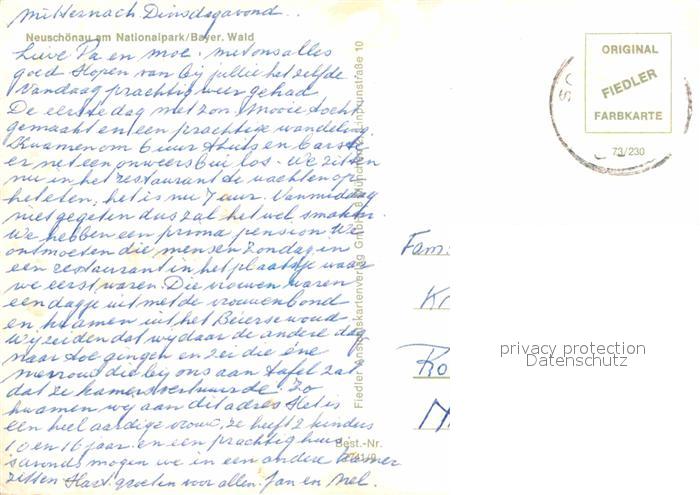 Mitternach. Dinsdagavond..
Neuschönau am Nationalpark/Bayer. Wald
Lieve Pa en moe. met ons alles
goed Hopen van bij jullie het zelfde
Vandaag prachtig weer gehad
De eerste dag met zon. Mooie tocht
gemaakt en een prachtige wandeling.
Kwamen om 6 uur thuis en barste
er net een onweersbui los. We zitten
nu in het restaurant te wachten op
het eten, het is nu 7 uur. Vanmiddag
niet gegeten dus zal het wel smaken.
We hebben een prima pension We
ontmoeten die mensen Zondag in
een restaurant in het plaatsje waar
we eerst waren. Die vrouwen waren
een dagje uit met de vrouwenbond
en kwamen uit het Beierse woud
Wij zeiden dat wij daar de andere dag
naar toe gingen en zei die éne
mevrouw die bij ons aan tafel zat
dat ze kamers verhuurde. Zo
kwamen wij aan dit adres Het is
een heel aardige vrouw, ze heeft 2 kinders
10 en 16 jaar. en een prachtig huis
s'avonds mogen we in een andere kamer
zitten Hart. groeten voor allen. Jan en Mel.
Fiedler Ansichtskartenverlag GmbH, 8 München
straße 10
Best.-Nr.
ORIGINAL
FIEDLER
FARBKARTE
73/230
Fam.
privacy protection
Datenschutz